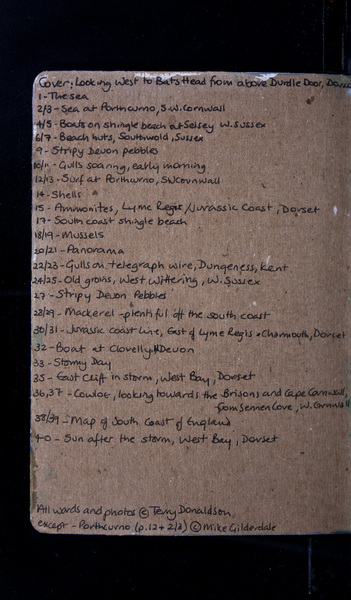 Cover: Looking West to Bats Head from above Durdle Door, Dorset
1 - The sea
2/3 - Sea at Porthcurno, S.W. Cornwall
4/5 - Boats on shingle beach at Selsey W. Sussex
6/7 - Beach huts, Southwold, Sussex
9 - Stripy Devon pebbles
10/11 - Gulls soaring, early morning
12/13 - Surf at Porthcurno, SW Cornwall
14 - Shells
15 - Ammonites, Lyme Regis / Jurassic Coast, Dorset
17 - South coast shingle beach
18/19 - Mussels
20/21 - Panorama
22/23 - Gulls on telegraph wire, Dungeness, Kent
24/25 - Old groins, West Wittering, W. Sussex
27 - Stripy Devon Pebbles
28/29 - Mackerel - plentiful off the south coast
30/31 - Jurassic coast line, East of Lyme Regis & Charmouth, Dorset
32 - Boat at Clovelly N Devon
33 - Stormy Day
35 - East Cliff in storm, West Bay, Dorset
36,37 - Cowloe, looking towards the Brisons and Cape Cornwall,
from Sennen Cove, W. Cornwall
38/39 - Map of South Coast of England
40 - Sun after the storm, West Bay, Dorset
All words and photos © Terry Donaldson,
except - Porthcurno (p.12 + 2/3) © Mike Gilderdale